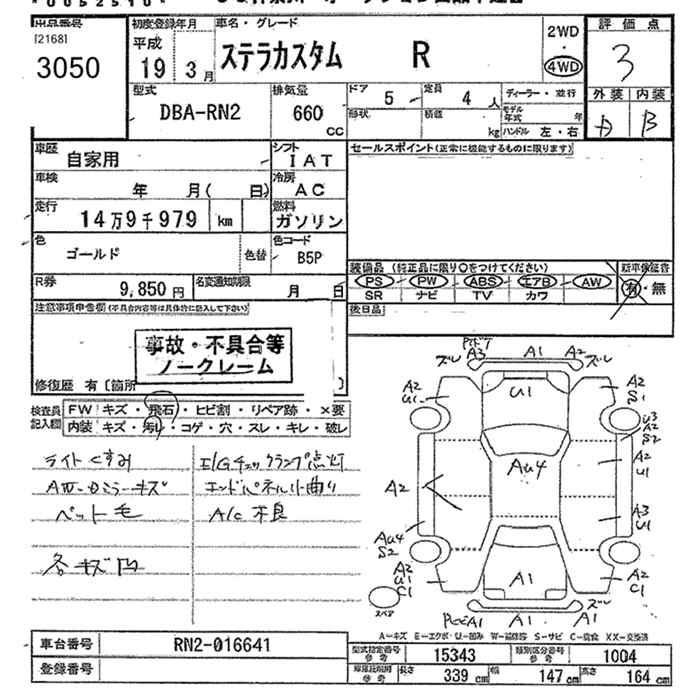 出品番号
[2168]
3050
初度登録年月
平成
19年 3月
車名・グレード
ステラカスタム R
2WD
・
4WD
評価点
3
外装 内装
B
型式
DBA-RN2
排気量
660
CC
ドア 5
定員 4 人
形状
積載
kg
ディーラー・並行
モデル年式 年
ハンドル 左・右
車歴
自家用
シフト
IAT
車検
年 月( 日)
冷房
AC
走行
14万9千979 km
燃料
ガソリン
色
ゴールド
色替
色コード
B5P
R券
9,850円
名変通知期限
月 日
セールスポイント(正常に機能するものに限ります)
装備品 (純正品に限り○をつけてください)
PS・PW・ABS・エアB・AW
SR ナビ TV カワ
新車保証書
有・無
後日品
注意事項申告欄(不具合内容等は具体的に記入して下さい)
事故・不具合等
ノークレーム
修復歴 有〔箇所 〕
検査員
記入欄
FW キズ・飛石・ヒビ割・リペア跡・×要
内装 キズ・汚レ・コゲ・穴・スレ・キレ・破レ
ライトくすみ
キズ
ペット毛
各キズ凹
E/Gチェックランプ点灯
エンドパネル小曲り
A/C不良
ズレ A3 A1 A2 ズレ
A2
U1
U1
A2
S1
U3
A2
S2
A2
U1
Au4
A2
A3
U1
Au4
S2
A2
U1
C1
A2
C1
A1
スペア
A1
A1
ズレ
A1
A-キズ E-エクボ・U-凹み W-補修跡 S-サビ C-腐食 XX-交換済
車台番号
RN2-016641
登録番号
型式指定番号
参考
15343
類別区分番号
参考
1004
参考
長さ 339 cm
幅 147 cm
高さ 164 cm